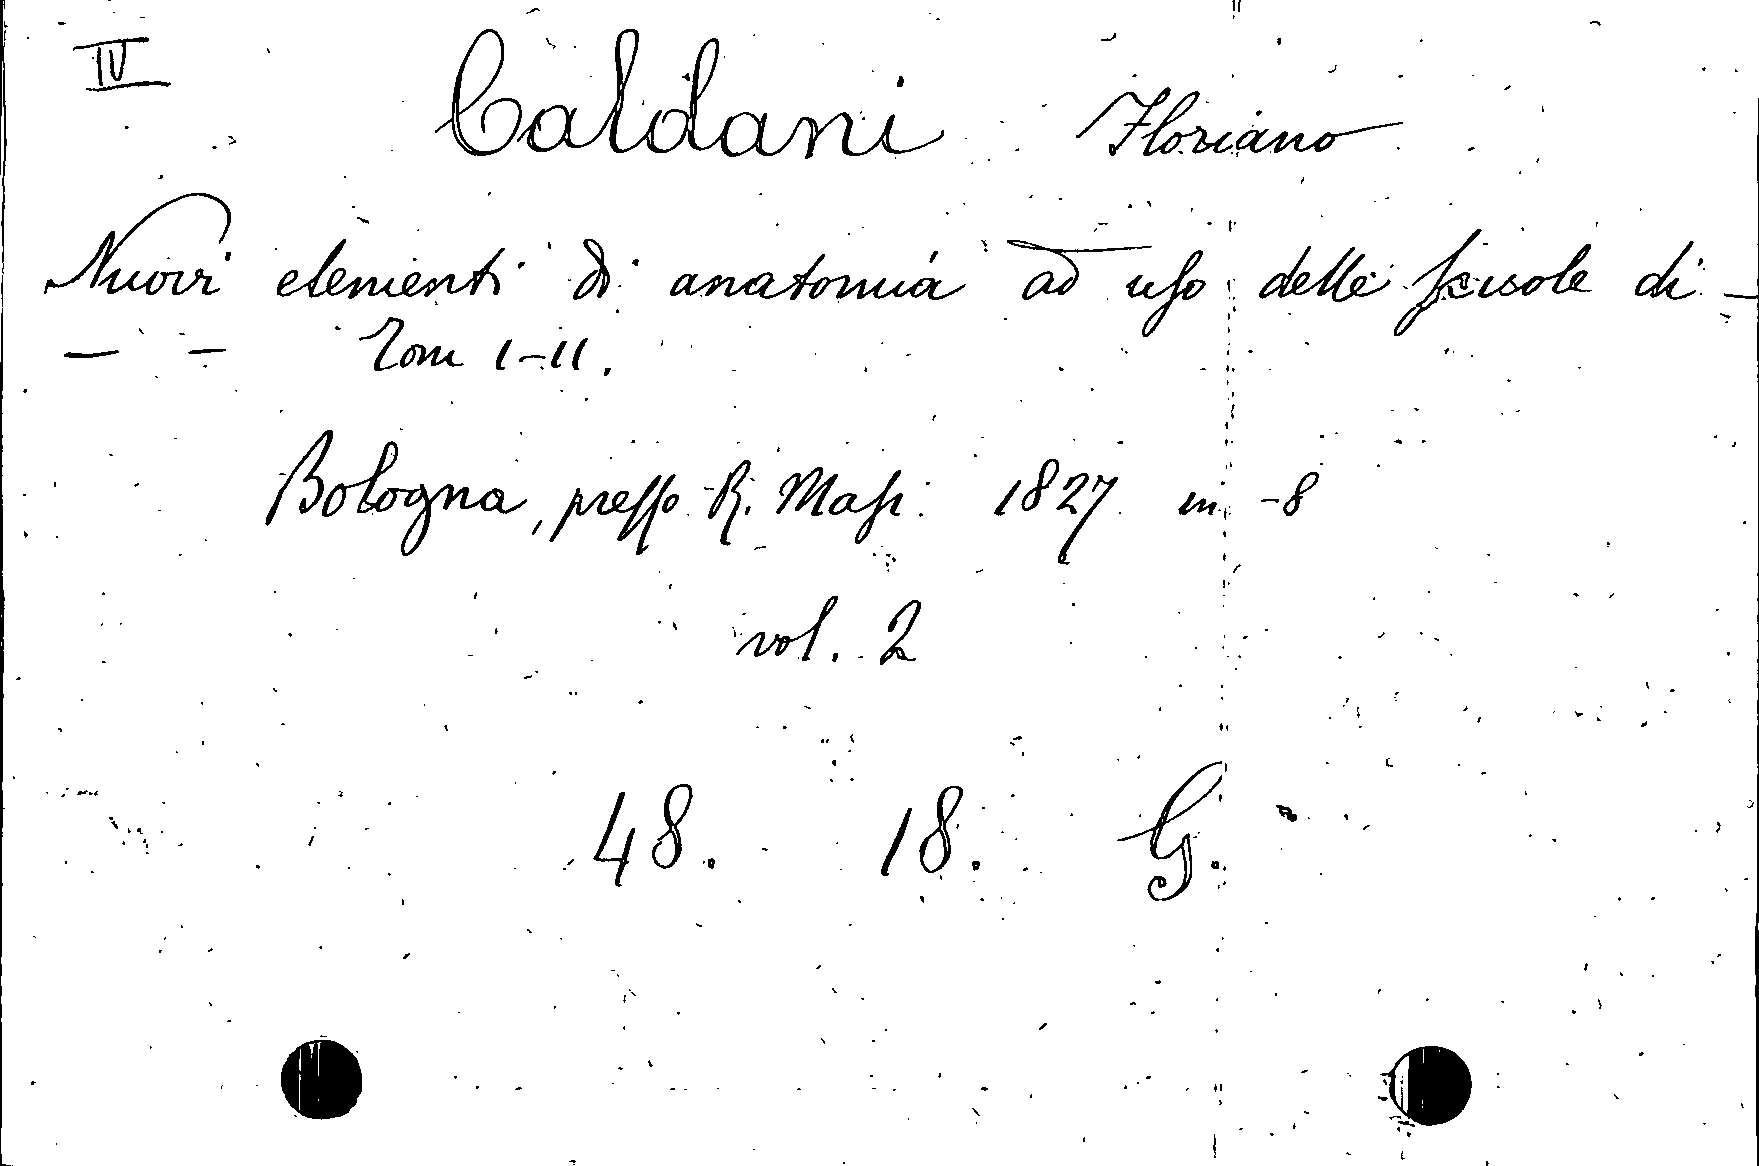 IV
Caldani Floriano
Nuovi elementi di anatomia ad uso delle scuole di -
- - Tom I-II.
Bologna, presso R. Masi 1827 in -8
vol. 2
48. 18. G.